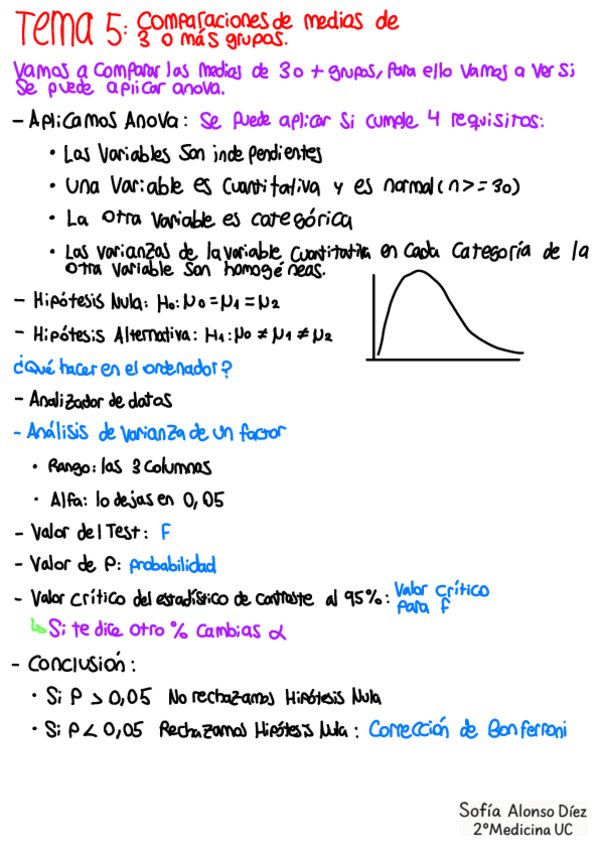 Tema 5: Comparaciones de medias de
3 o más grupos.
Vamos a comparar las medias de 3 o + grupos, para ello vamos a ver si
se puede aplicar anova.
- Aplicamos Anova: Se puede aplicar si cumple 4 requisitos:
• Las variables son independientes
• Una variable es cuantitativa y es normal (n >= 30)
• La otra variable es categórica
• Las varianzas de la variable cuantitativa en cada categoría de la
otra variable son homogéneas.
- Hipótesis Nula: H0: μ0 = μ1 = μ2
- Hipótesis Alternativa: H1: μ0 ≠ μ1 ≠ μ2
¿Qué hacer en el ordenador?
- Analizador de datos
- Análisis de varianza de un factor
• Rango: las 3 columnas
• Alfa: lo dejas en 0,05
- Valor del Test: F
- Valor de P: probabilidad
- Valor crítico del estadístico de contraste al 95%: Valor crítico
para F
↳ Si te dice otro % cambias α
- Conclusión:
• Si P > 0,05 No rechazamos Hipótesis Nula
• Si P < 0,05 Rechazamos Hipótesis Nula: Corrección de Bonferroni
Sofía Alonso Díez
2ºMedicina UC